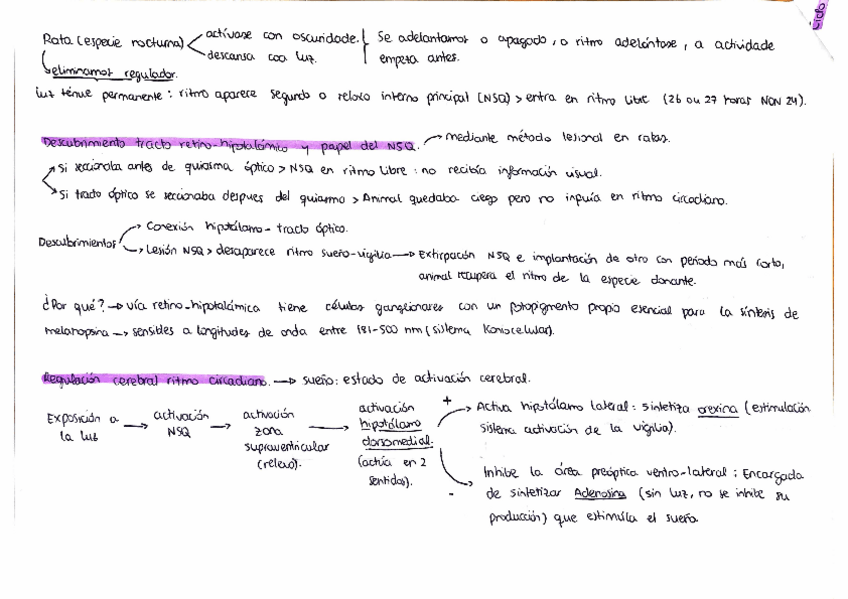 Lípo
Rata (especie nocturna) actívase con oscuridade. Se adelantamos o apagado, o ritmo adelántase, a actividade
descansa coa luz. empeza antes.
eliminamos regulador.
Luz ténue permanente: ritmo aparece segundo o reloxo interno principal (NSQ) > entra en ritmo libre (26 ou 27 horas NON 24).
Descubrimiento tracto retino-hipotalámico y papel del NSQ. → mediante método lesional en ratas.
Si seccionaba antes de quiasma óptico > NSQ en ritmo libre: no recibía información visual.
Si tracto óptico se seccionaba despues del quiasma > Animal quedaba ciego pero no inpuía en ritmo circadiano.
Descubrimientos → Conexión hipotálamo - tracto óptico.
→ Lesión NSQ > desaparece ritmo sueño-vigilia → Extirpación NSQ e implantación de otro con período más corto,
animal recupera el ritmo de la especie donante.
¿Por qué? → vía retino-hipotalámica tiene células ganglionares con un fotopigmento propio esencial para la síntesis de
melanopsina → sensibles a longitudes de onda entre 181-500 nm (sistema Koniocelular).
Regulación cerebral ritmo circadiano. → sueño: estado de activación cerebral.
Exposición a la luz → activación NSQ → activación zona supraventricular (relevo). → activación hipotálamo dorsomedial. (actúa en 2 sentidos).
+ → Activa hipotálamo lateral: sintetiza orexina (estimulación
sistema activación de la vigilia).
- → Inhibe la área preóptica ventro-lateral: Encargada
de sintetizar Adenosina (sin luz, no se inhibe su
producción) que estimula el sueño